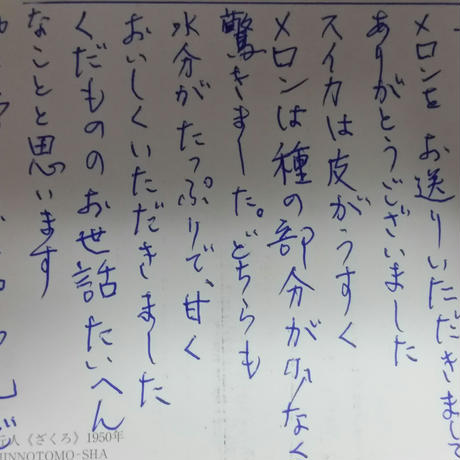 メロンをお送りいただきまして
ありがとうございました
スイカは皮がうすく
メロンは種の部分が少なく
驚きました。どちらも
水分がたっぷりで、甘く
おいしくいただきました
くだもののお世話たいへん
なことと思います
人《ざくろ》1950年
HINNOTOMO-SHA